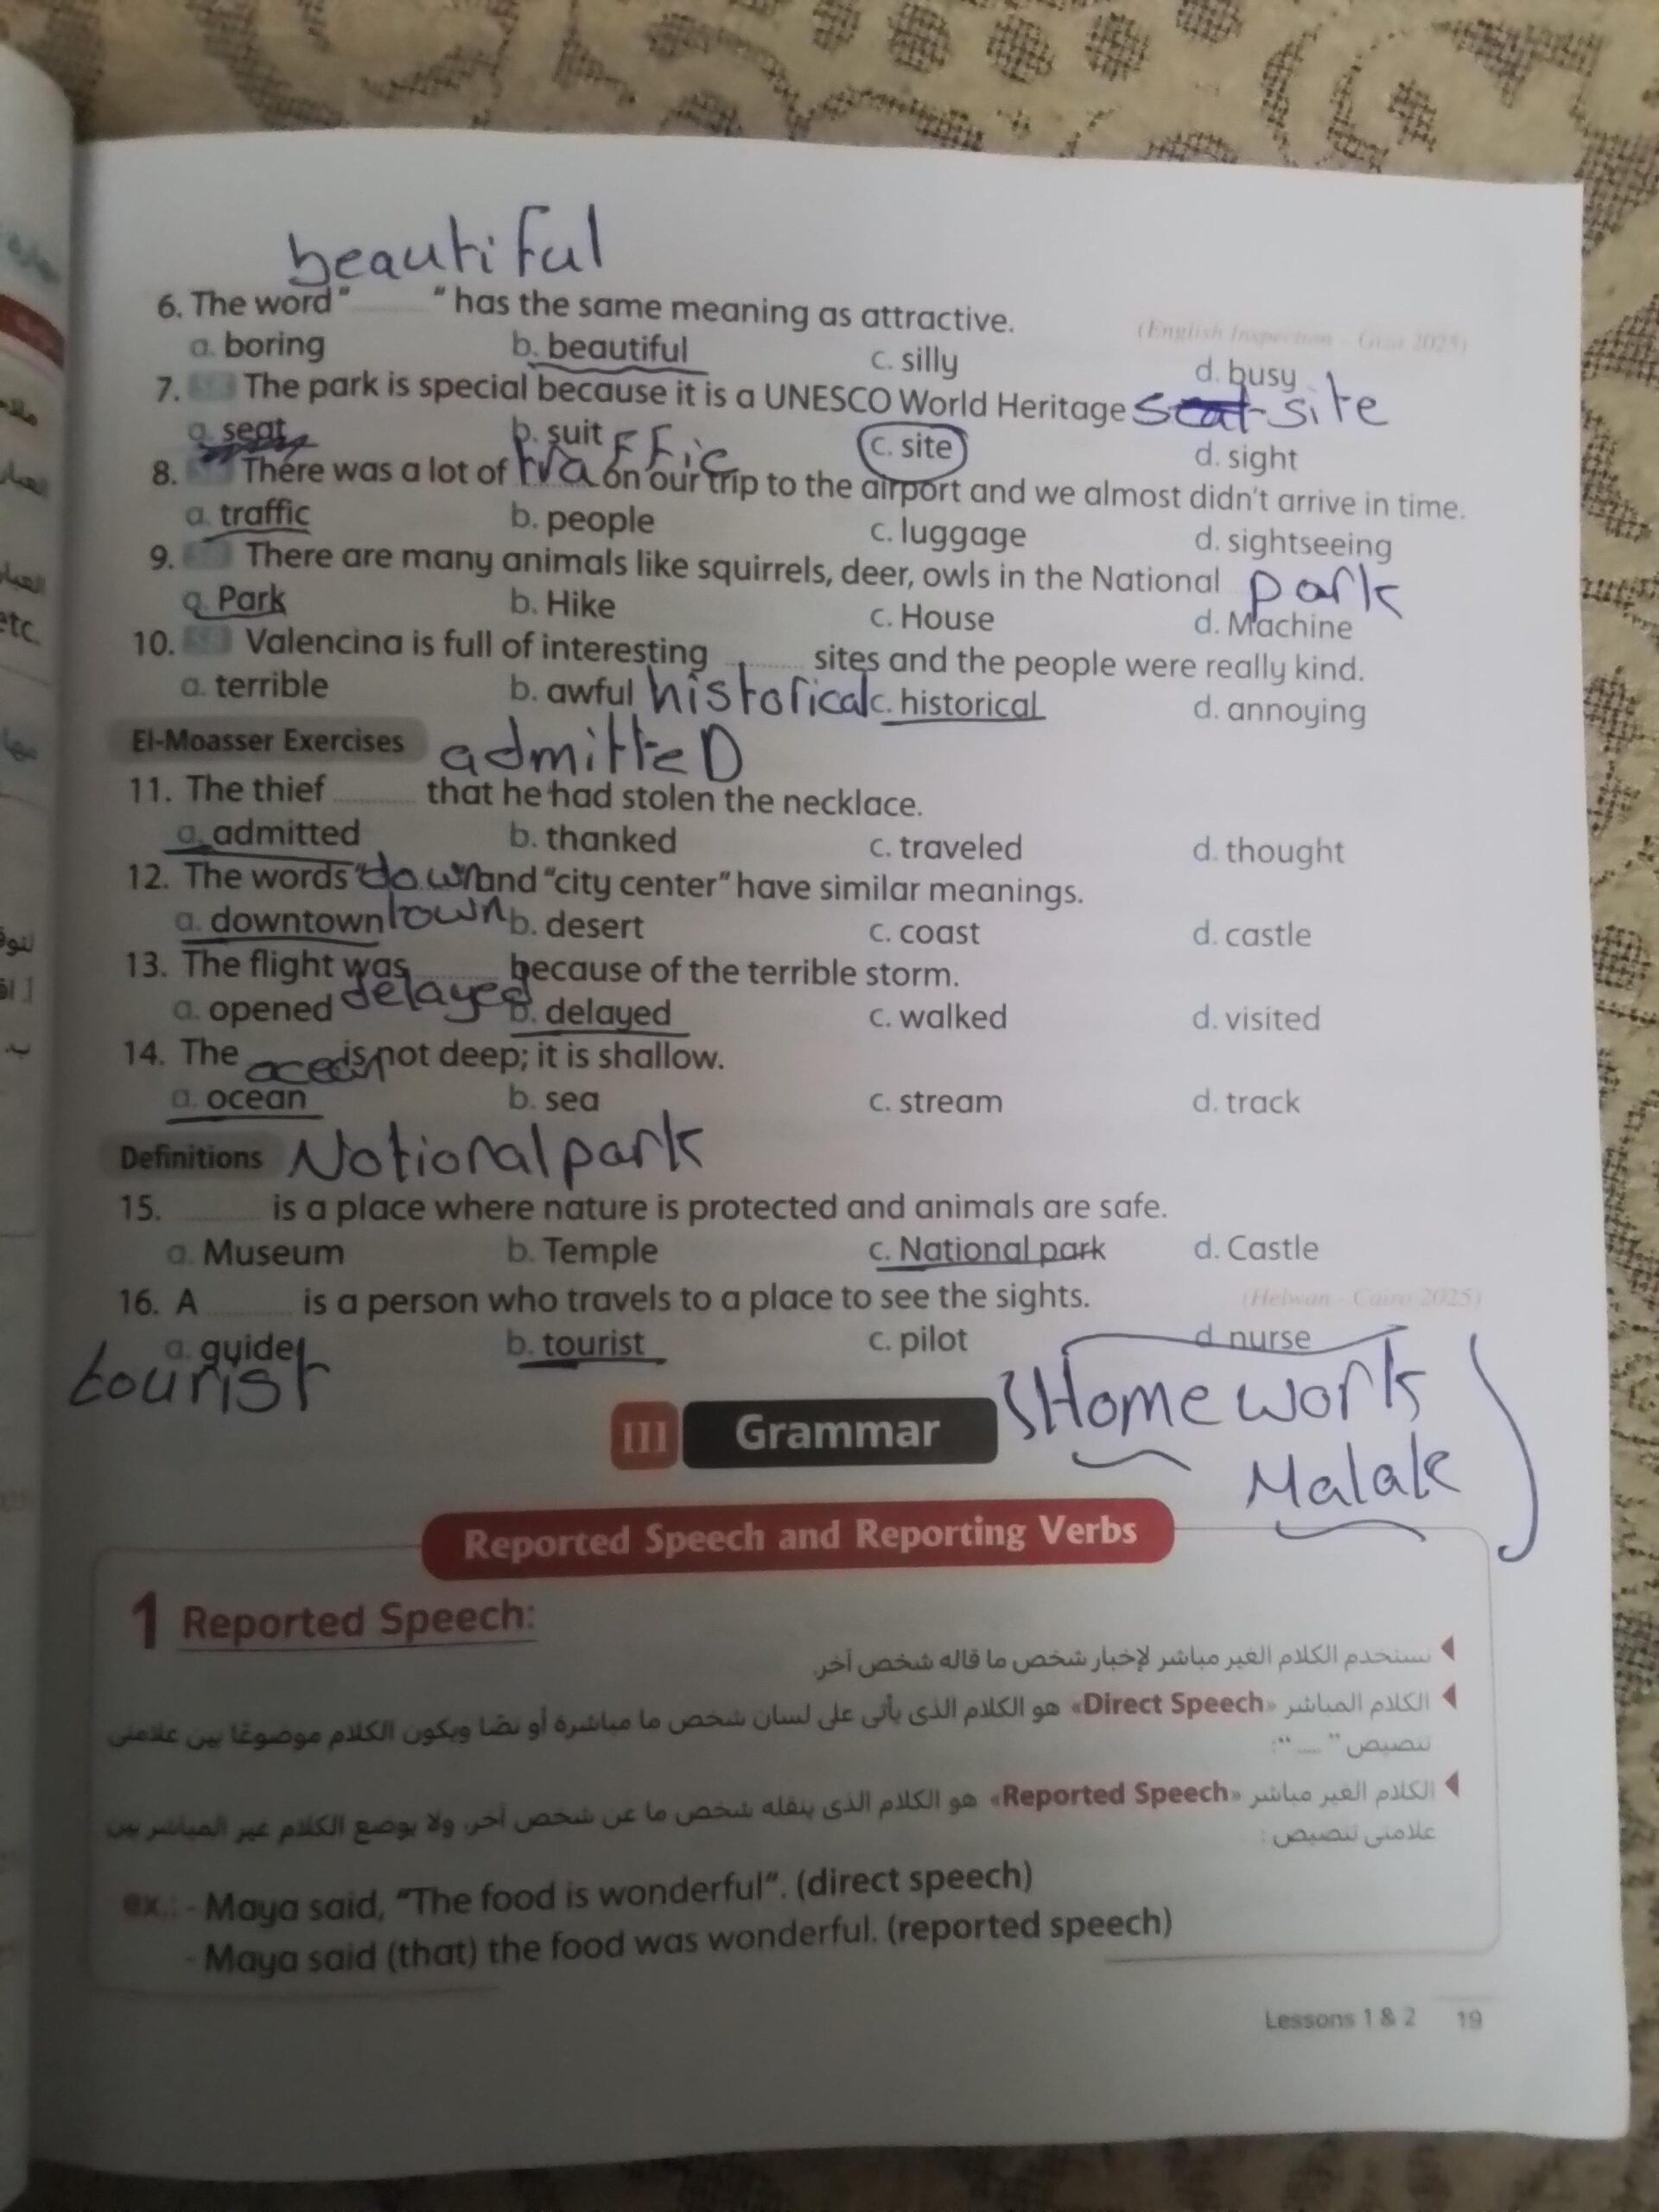 beautiful
6. The word " ........ " has the same meaning as attractive.
(English Inspection - Giza 2025)
a. boring b. beautiful c. silly d. busy
7. The park is special because it is a UNESCO World Heritage seat site
a. seat b. suit c. site d. sight
8. There was a lot of traffic on our trip to the airport and we almost didn't arrive in time.
a. traffic b. people c. luggage d. sightseeing
9. There are many animals like squirrels, deer, owls in the National park
a. Park b. Hike c. House d. Machine
10. Valencina is full of interesting ........ sites and the people were really kind.
a. terrible b. awful historical c. historical d. annoying
El-Moasser Exercises admitteD
11. The thief ........ that he had stolen the necklace.
a. admitted b. thanked c. traveled d. thought
12. The words "down and "city center" have similar meanings.
a. downtown town b. desert c. coast d. castle
13. The flight was ........ because of the terrible storm.
a. opened delayed b. delayed c. walked d. visited
14. The ocean is not deep; it is shallow.
a. ocean b. sea c. stream d. track
Definitions National park
15. ........ is a place where nature is protected and animals are safe.
a. Museum b. Temple c. National park d. Castle
16. A ........ is a person who travels to a place to see the sights.
(Helwan - Cairo 2025)
a. guide b. tourist c. pilot d. nurse
tourist
Home work
Malak
III Grammar
Reported Speech and Reporting Verbs
1 Reported Speech:
نستخدم الكلام الغير مباشر لإخبار شخص ما قاله شخص آخر.
الكلام المباشر «Direct Speech» هو الكلام الذى يأتى على لسان شخص ما مباشرة أو نصًا ويكون الكلام موضوعًا بين علامتى
تنصيص " .... ":
الكلام الغير مباشر «Reported Speech» هو الكلام الذى ينقله شخص ما عن شخص آخر، ولا يوضع الكلام غير المباشر بين
علامتى تنصيص:
ex.: - Maya said, "The food is wonderful". (direct speech)
- Maya said (that) the food was wonderful. (reported speech)
Lessons 1 & 2 19